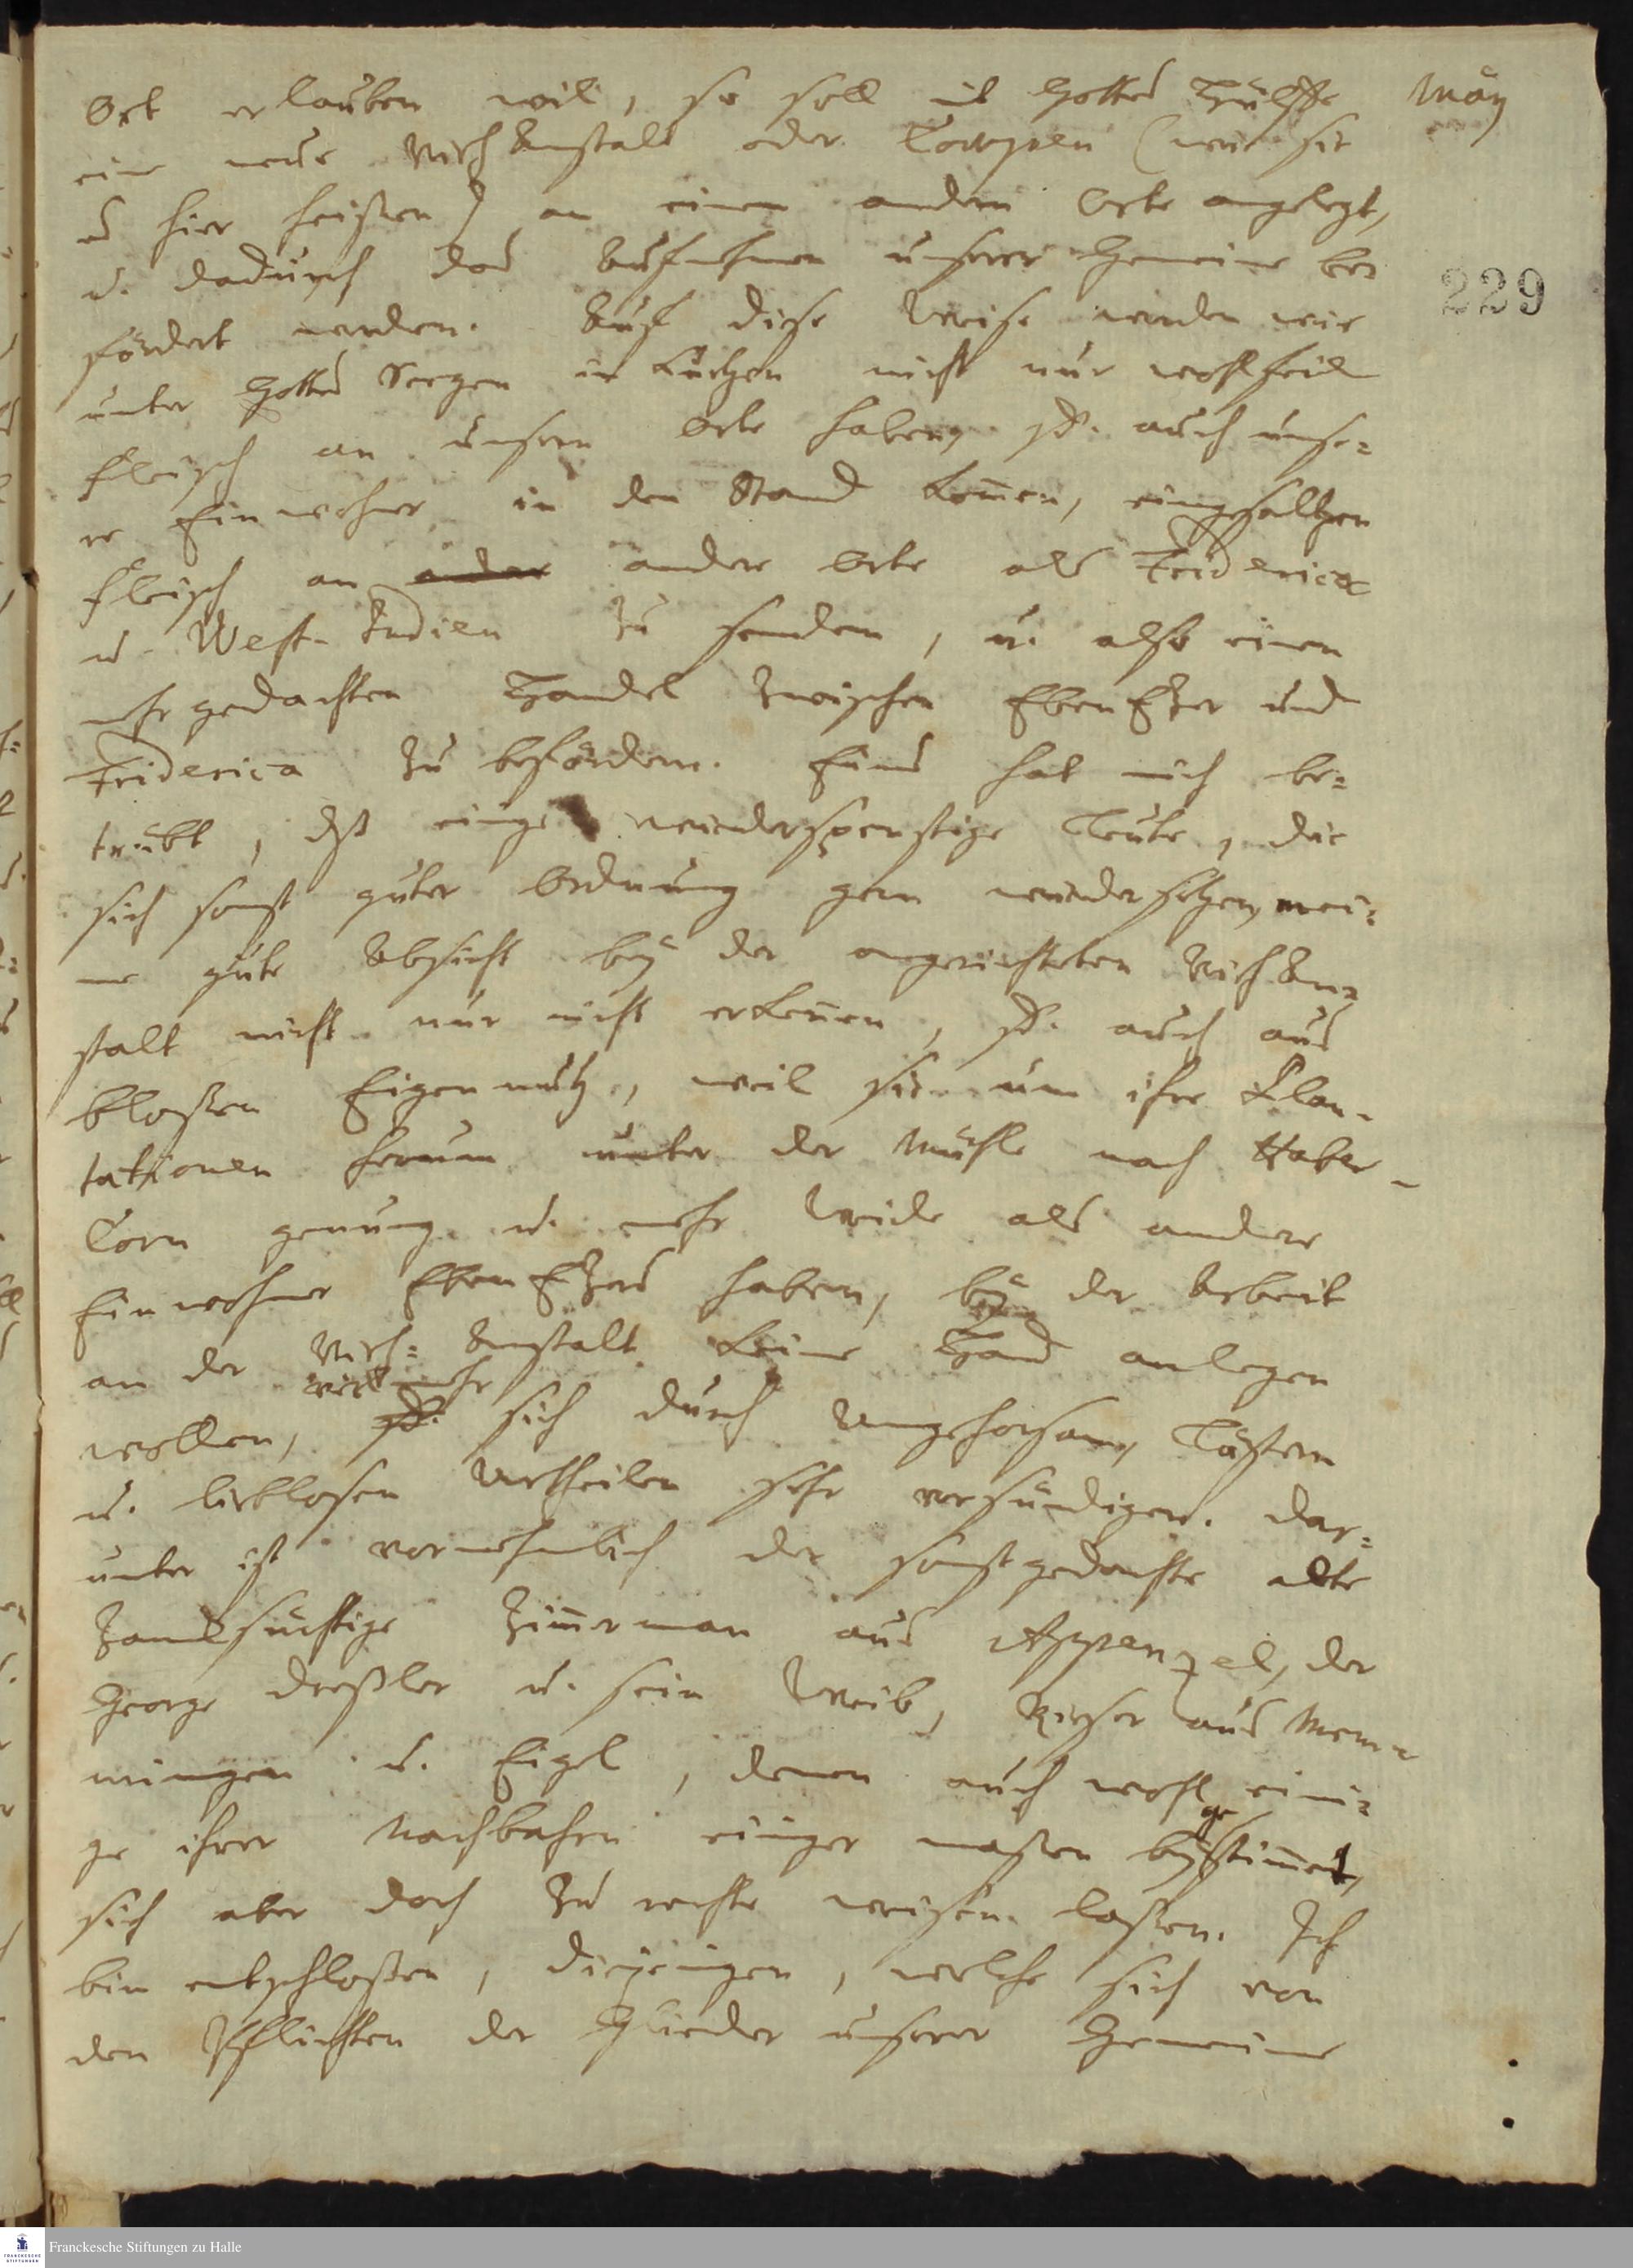 Ort erlauben will, so soll mit Gottes Hülffe
May
eine neue Vieh Anstalt oder Cowpen (wie sie
es hier heißen) an einem andern Orte angelegt,
u. dadurch das Aufnehmen unserer Gemeine be=
229
fördert werden. Auf diese Weise werden wir
unter Gottes Seegen in Kurtzen nicht nur wohlfeil
Fleisch an unserm Orte haben, sd. auch unse=
re Einwohner in den Stand kom̄en, eingesaltzen
Fleisch an ander andere Orte als Friderica
u. West-Indien zu senden, u. also einen
mehrgedachten Handel zwischen EbenEzer und
Friderica zu befördern. Eines hat mich be=
trübt, dß einige wiederspenstige Leute, die
sich sonst guter Ordnung gern wiedersetzen, mei=
ne gute Absicht bey der angerichteten Vieh An=
stalt nicht nur nicht erken̄en, sd. auch aus
bloßen Eigennutz, weil sie um ihre Plan-
tationen herum unter der Mühle nach Haber-
Corn genung u. mehr Weide als andere
Einwohner EbenEzers haben, bey der Arbeit
an der Vieh=Anstalt keine Hand anlegen
vielmehr
wollen, sd. sich durch Ungehorsam, Lästern
u. lieblosen Urtheilen sehr versündigen. Dar=
unter ist vornehmlich der sonst gedachte alte
zancksüchtige Zim̄erman aus Appenzel, der
George Dreßler u. sein Weib, Rieser aus Mem=
mingen u. Eigel, denen auch wohl eini=
ge
ge ihrer Nachbahren einiger maßen beystim̄et,
sich aber doch zu rechte weisen laßen. Ich
bin entschloßen, diejenigen, welche sich von
den Pflichten der Glieder unserer Gemeine
FRANCKESCHE STIFTUNGEN
Franckesche Stiftungen zu Halle